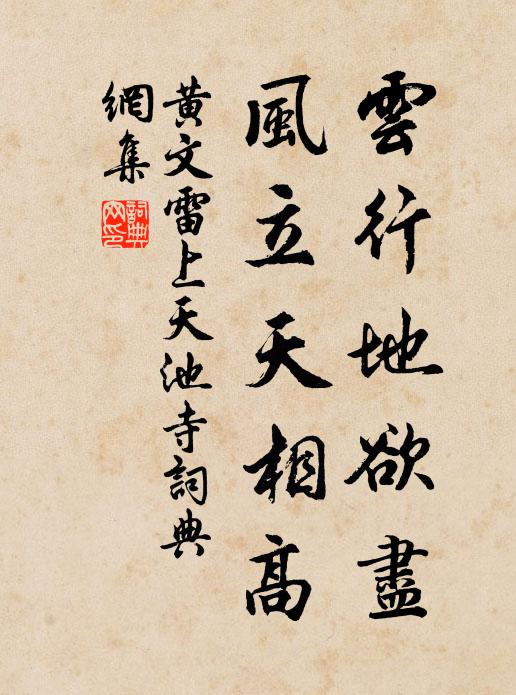 雲行地欲盡
風立天相高
黃文雷上天池寺詞典
網集
詞典
网印